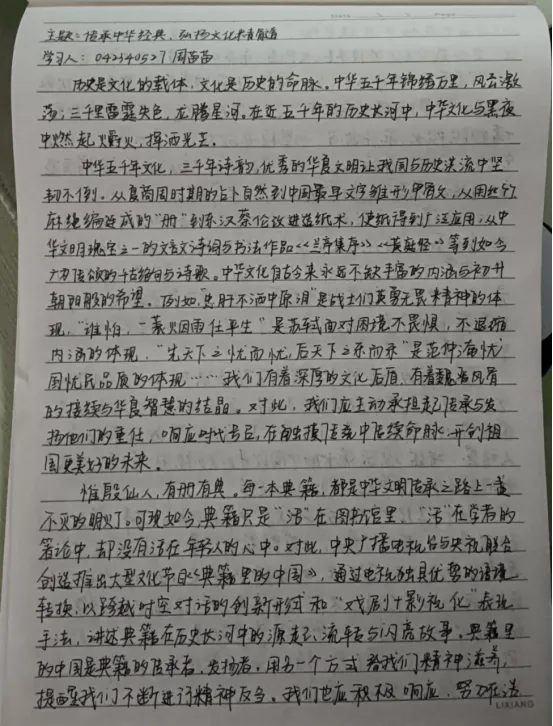 主题:传承中华经典,弘扬文化精髓
学习人:042340527周苗苗
历史是文化的载体,文化是历史的命脉。中华五千年锦绣万里,风云激
荡;三千里雷霆失色,龙腾星河。在近五千年的历史长河中,中华文化与黑夜
中燃起爝火,挥洒光芒。
中华五千年文化,三千年诗韵,优秀的华夏文明让我国与历史洪流中坚
韧不倒。从夏商周时期的占卜自然到中国最早文字雏形甲骨文,从用丝竹
麻绳编连成的“册”到东汉蔡伦改进造纸术,使纸得到广泛应用;从中
华文明瑰宝之一的文言文诗词与书法作品《兰亭集序》《黄庭经》等到如今
广为传颂的千古绝句与诗歌。中华文化自古今来永远不缺丰富的内涵与初升
朝阳般的希望。例如,“忠肝不洒中原泪”是战士们英勇无畏精神的体
现,“谁怕,一蓑烟雨任平生”是苏轼面对困境不畏惧,不退缩
内涵的体现,“先天下之忧而忧,后天下之乐而乐”是范仲淹忧
国忧民品质的体现……我们有着深厚的文化后盾,有着魏晋风骨
的接续与华夏智慧的结晶。对此,我们应主动承担起传承与发
扬他们的重任,响应时代号召,在触摸传统中传续命脉,开创祖
国更美好的未来。
惟殷仙人,有册有典。每一本典籍,都是中华文明传承之路上一盏
不灭的明灯。可现如今,典籍只是“活”在图书馆里,“活”在学者的
著论中,却没有活在年轻人的心中。对此,中央广播电视总台央视联合
创造推出大型文化节目《典籍里的中国》,通过电视独具优势的语境
转换,以跨越时空对话的创新形式和“戏剧+影视化”表现
手法,讲述典籍在历史长河中的源起、流转与闪亮故事。典籍里
的中国是典籍的传承者,发扬者,用另一个方式给我们精神滋养,
提醒我们不断进行精神反刍。我们也应积极响应,努力在活
LIXIANG